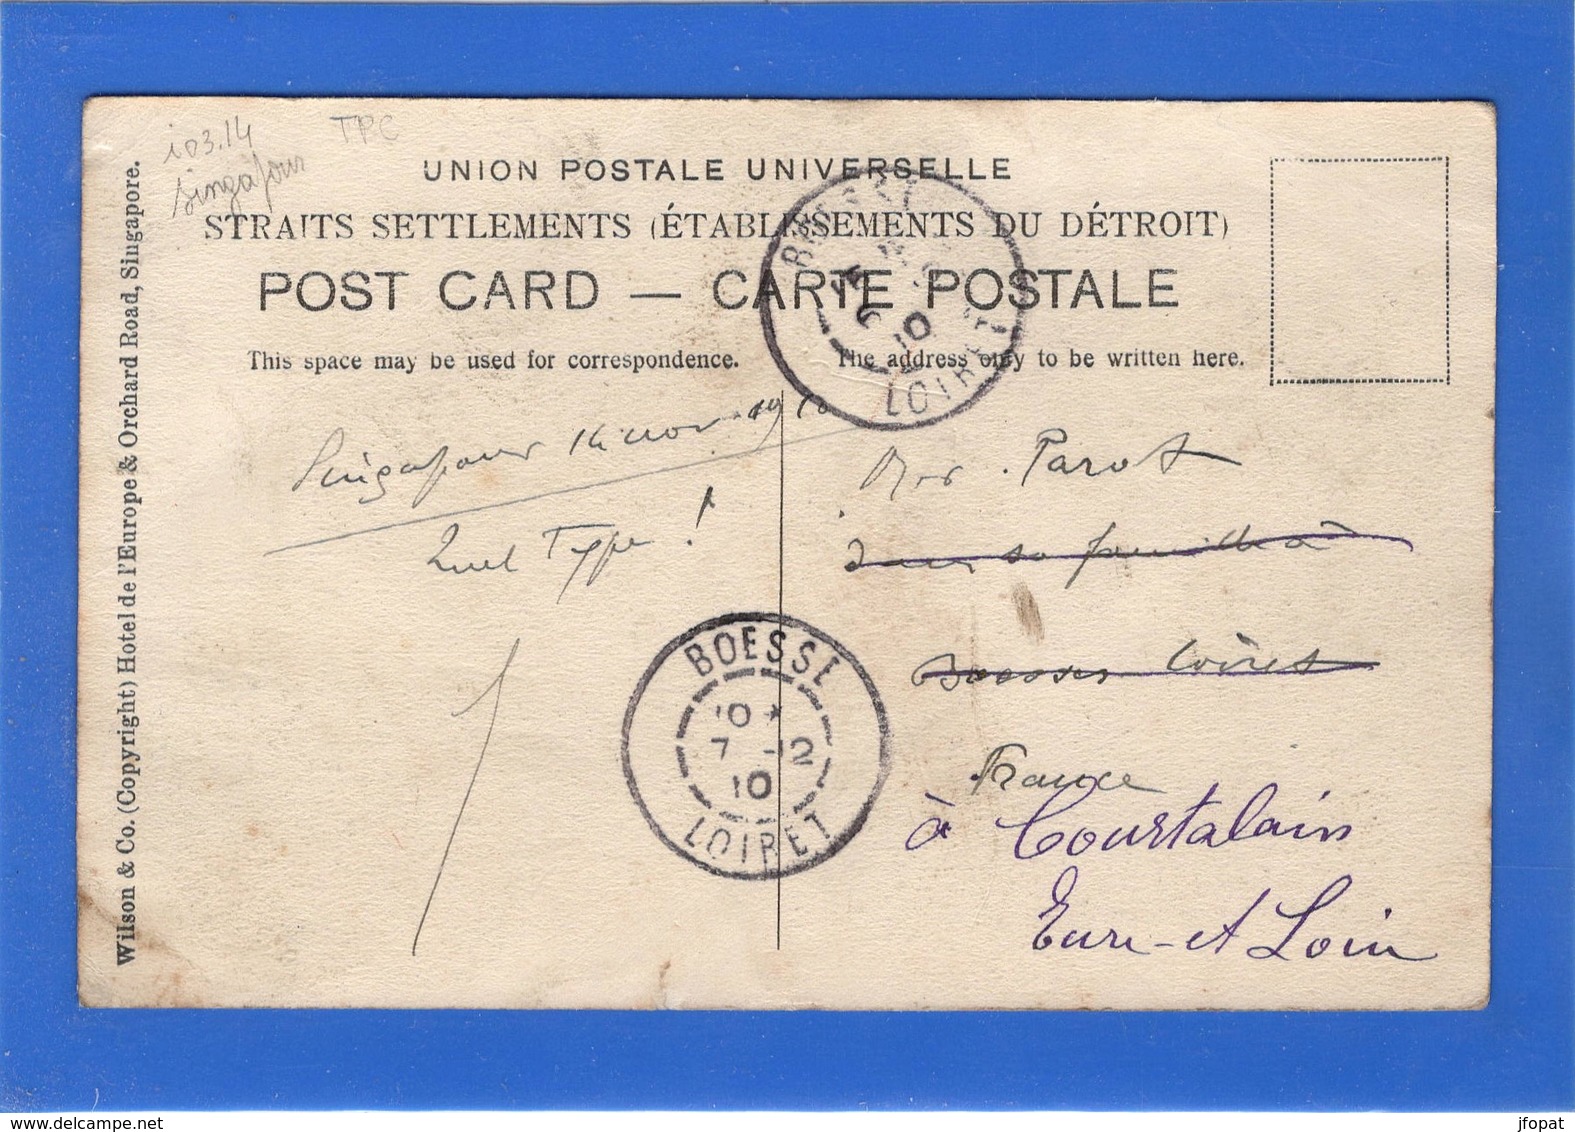 i03.14
TPC
Singapour
UNION POSTALE UNIVERSELLE
STRAITS SETTLEMENTS (ÉTABLISSEMENTS DU DÉTROIT)
POST CARD — CARTE POSTALE
This space may be used for correspondence.
The address only to be written here.
Wilson & Co. (Copyright) Hotel de l'Europe & Orchard Road, Singapore.
LOIRET
10
Singapour 14 nov. 1910
Quel Type !
Parot
dans sa famille à
Boesses Loiret
France
à Courtalain
Eure-et Loir
BOESSE
10 *
7 -12
10
LOIRET
www.delcampe.net
jfopat